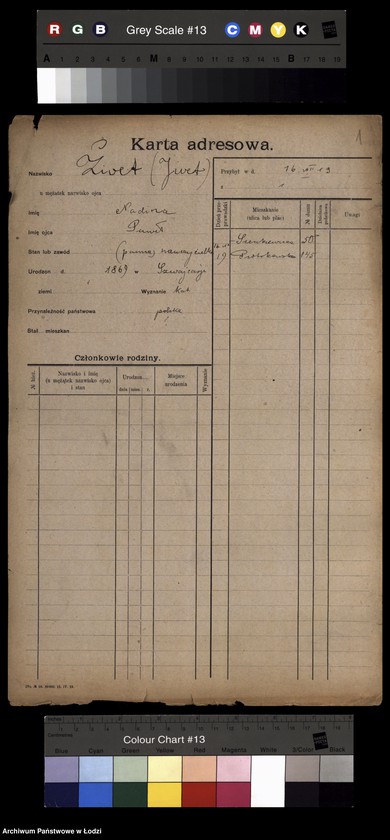 R G B Grey Scale #13 C M Y K
A 1 2 3 4 5 6 M 7 8 9 10 11 12 13 14 15 B 17 18 19
1
Karta adresowa.
Nazwisko Żivet (Jvet)
a mężatek nazwisko ojca
Imię Nadina
Imię ojca Paweł
Stan lub zawód (panna) nauczycielka
Urodzon d. 1869 w Szwajcarji
ziemi Wyznanie kat
Przynależność państwowa polska
Stał. mieszkan.
Przybył w d. 16 VI 19
z
Dzień prze-prowadzki
Mieszkanie (ulica lub plac)
№ domu
Uwagi
Sienkiewicza 50
19 Piotrkowska 145
Członkowie rodziny.
Nazwisko i imię
(u mężatek nazwisko ojca)
i stan
Urodzon...
dnia mies. r.
Miejsce urodzenia
Wyznanie
Colour Chart #13
Blue Cyan Green Yellow Red Magenta White 3/Color Black
Archiwum Państwowe w Łodzi